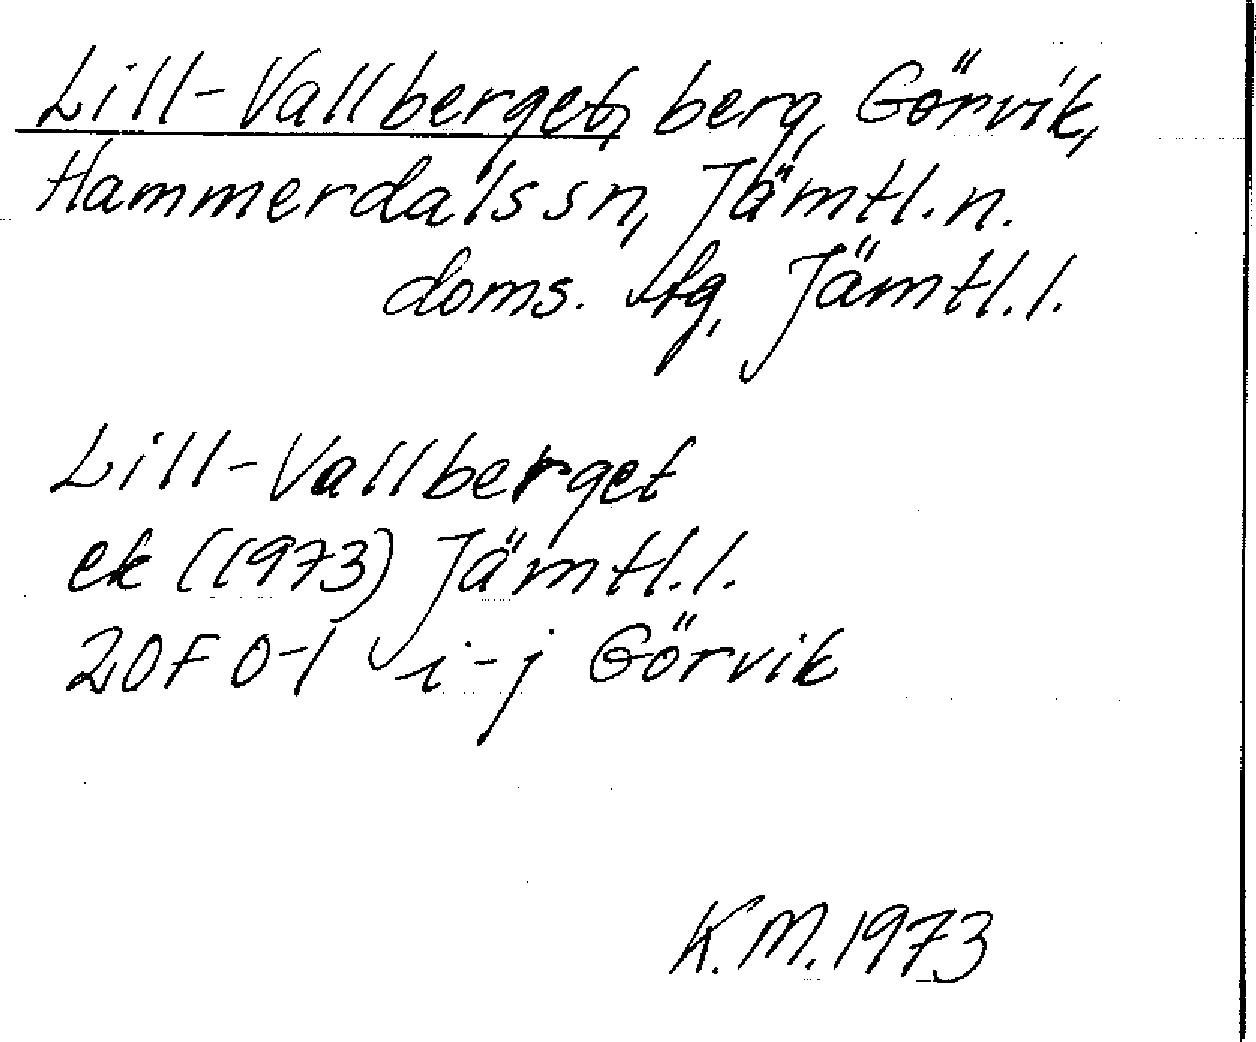 Lill-Vallberget, berg, Görvik,
Hammerdals sn, Jämtl. n.
doms. tfg, Jämtl. l.
Lill-Vallberget
ek (1973) Jämtl. l.
20F 0-1 i-j Görvik
K.M. 1973